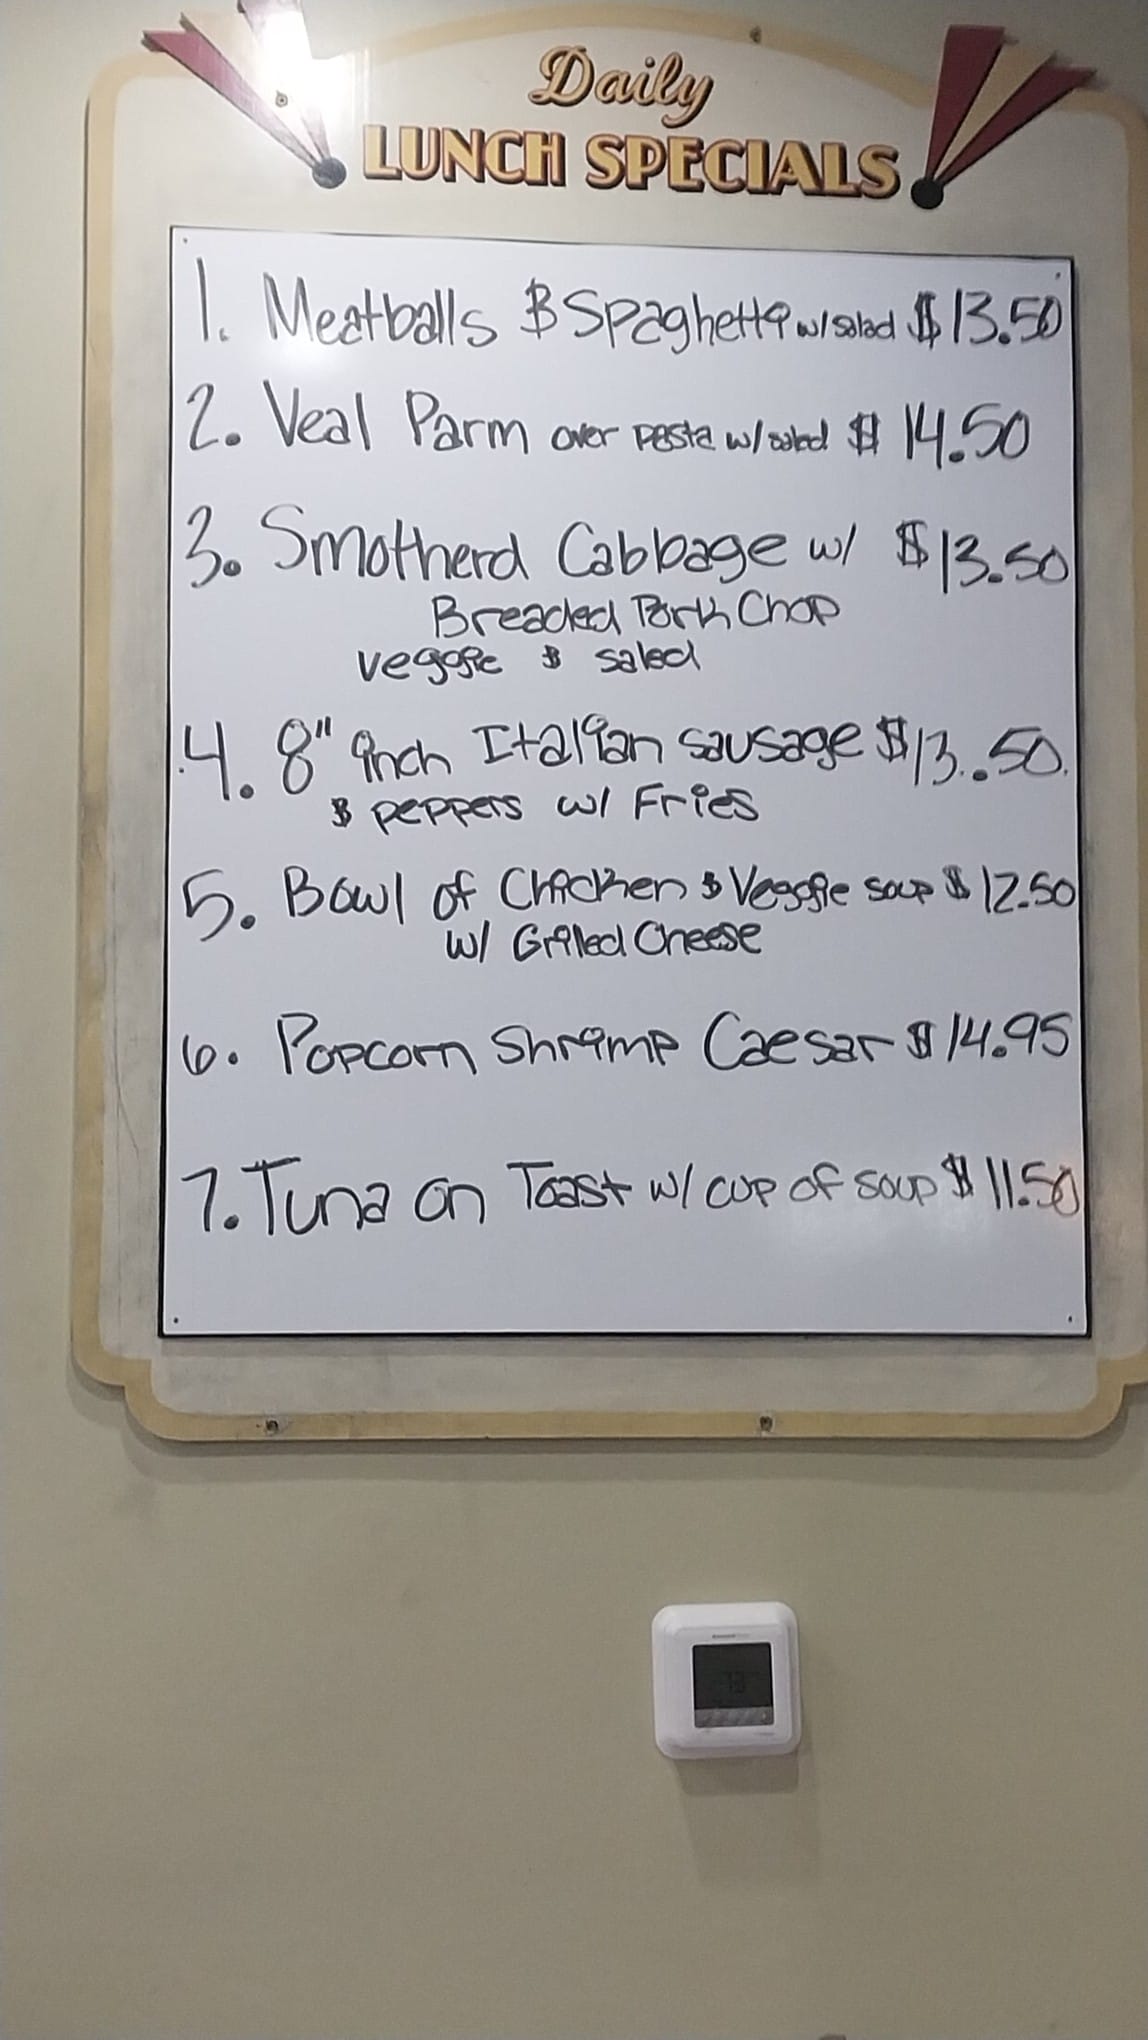 Daily
LUNCH SPECIALS
1. Meatballs & Spaghetti w/ salad $13.50
2. Veal Parm over pasta w/ salad $14.50
3. Smotherd Cabbage w/ $13.50
Breaded Pork Chop
veggie & salad
4. 8" inch Italian sausage $13.50
& peppers w/ Fries
5. Bowl of Chicken & Veggie soup $12.50
w/ Grilled Cheese
6. Popcorn Shrimp Caesar $14.95
7. Tuna on Toast w/ cup of soup $11.50